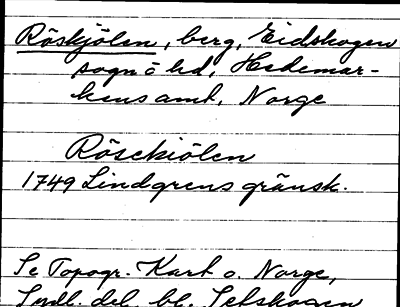 Röskjölen, berg, Eidskogen
sogn o hd, Hedemar-
kens amt, Norge
Rösekiölen
1749 Lindgrens gränsk.
Se Topogr. Kart o. Norge,
Sydl. del, bl. Setskogen